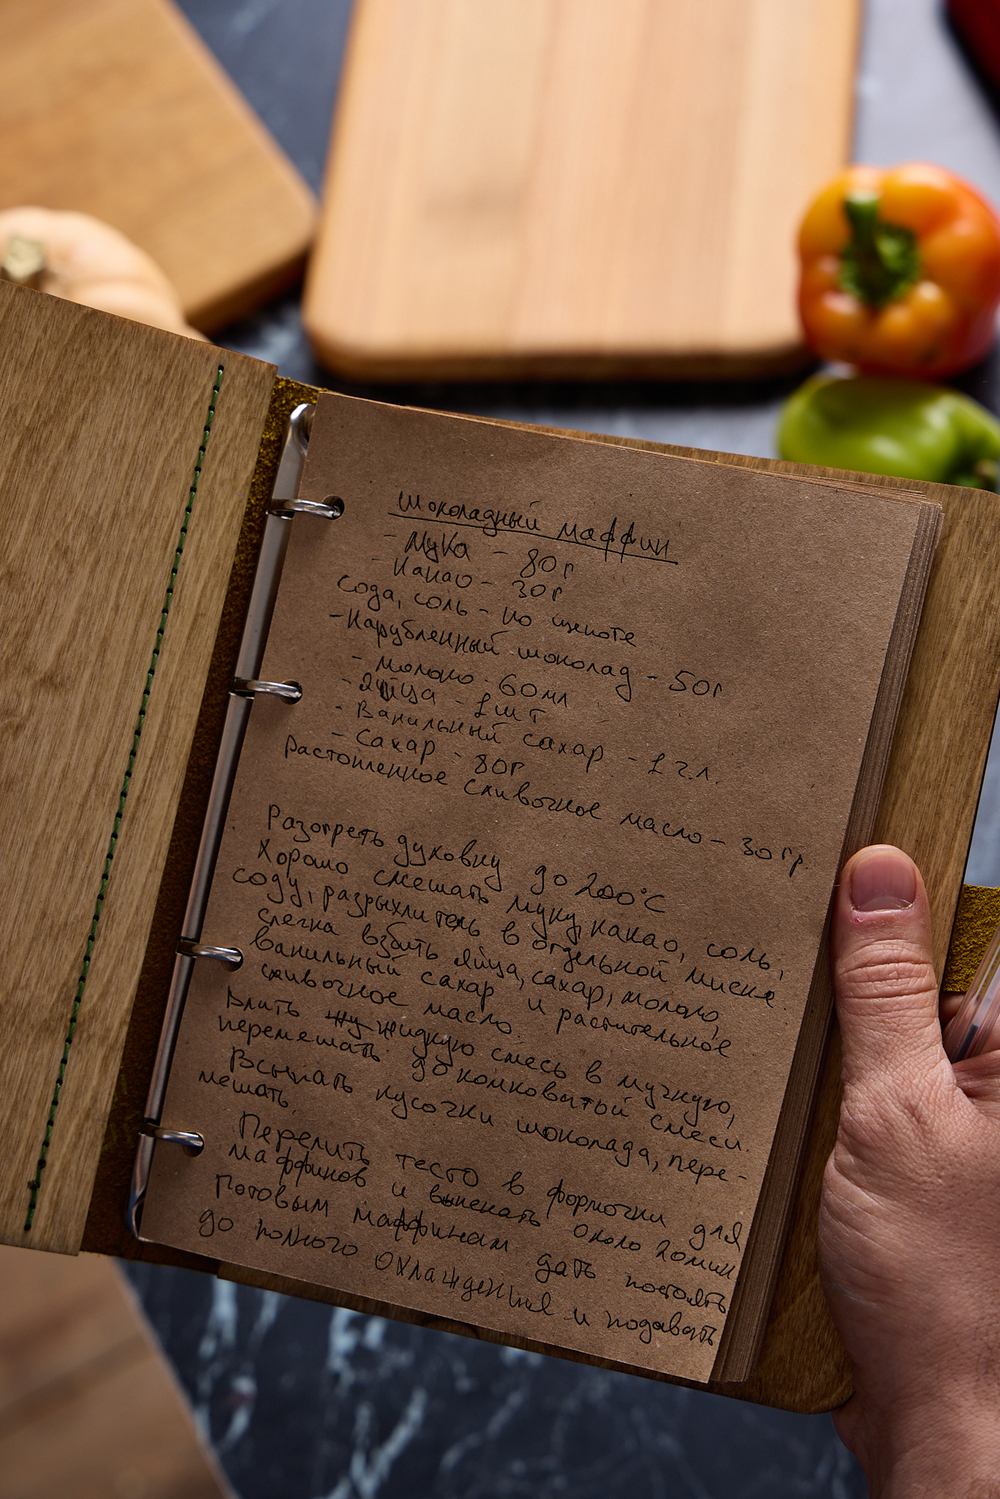 Шоколадный маффин
- Мука - 80г
- Какао - 30г
Сода, соль - по щепоте
- Нарубленный шоколад - 50г
- Молоко - 60мл
- Яйца - 1шт
- Ванильный сахар - 1 ч.л.
- Сахар - 80г
Растопленное сливочное масло - 30гр.
Разогреть духовку до 200°С
Хорошо смешать муку, какао, соль,
соду, разрыхлитель в отдельной миске
слегка взбить яйца, сахар, молоко,
ванильный сахар и растительное
сливочное масло.
Влить жидкую смесь в мучную,
перемешать до комковатой смеси.
Всыпать кусочки шоколада, пере-
мешать.
Перелить тесто в формочки для
маффинов и выпекать около 20мин
Готовым маффинам дать постоять
до полного охлаждения и подавать